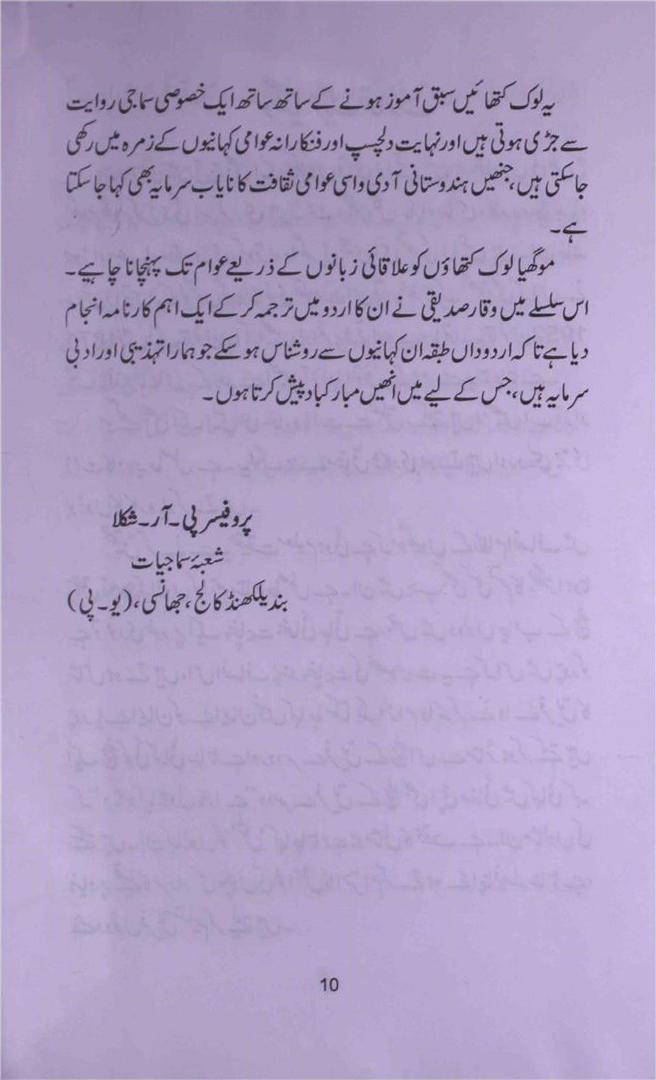 یہ لوک کتھائیں سبق آموز ہونے کے ساتھ ساتھ ایک خصوصی سماجی روایت
سے جڑی ہوتی ہیں اور نہایت دلچسپ اور فنکارانہ عوامی کہانیوں کے زمرہ میں رکھی
جاسکتی ہیں، جنھیں ہندوستانی آدی واسی عوامی ثقافت کا نایاب سرمایہ بھی کہا جاسکتا
ہے۔
موگھیا لوک کتھاؤں کو علاقائی زبانوں کے ذریعے عوام تک پہنچانا چاہیے۔
اس سلسلے میں وقار صدیقی نے ان کا اردو میں ترجمہ کرکے ایک اہم کارنامہ انجام
دیا ہے تاکہ اردو داں طبقہ ان کہانیوں سے روشناس ہوسکے جو ہمارا تہذیبی اور ادبی
سرمایہ ہیں، جس کے لیے میں انھیں مبارکباد پیش کرتا ہوں۔
پروفیسر پی۔ آر۔ شکلا
شعبۂ سماجیات
بندیلکھنڈ کالج، جھانسی، (یو۔ پی)
10